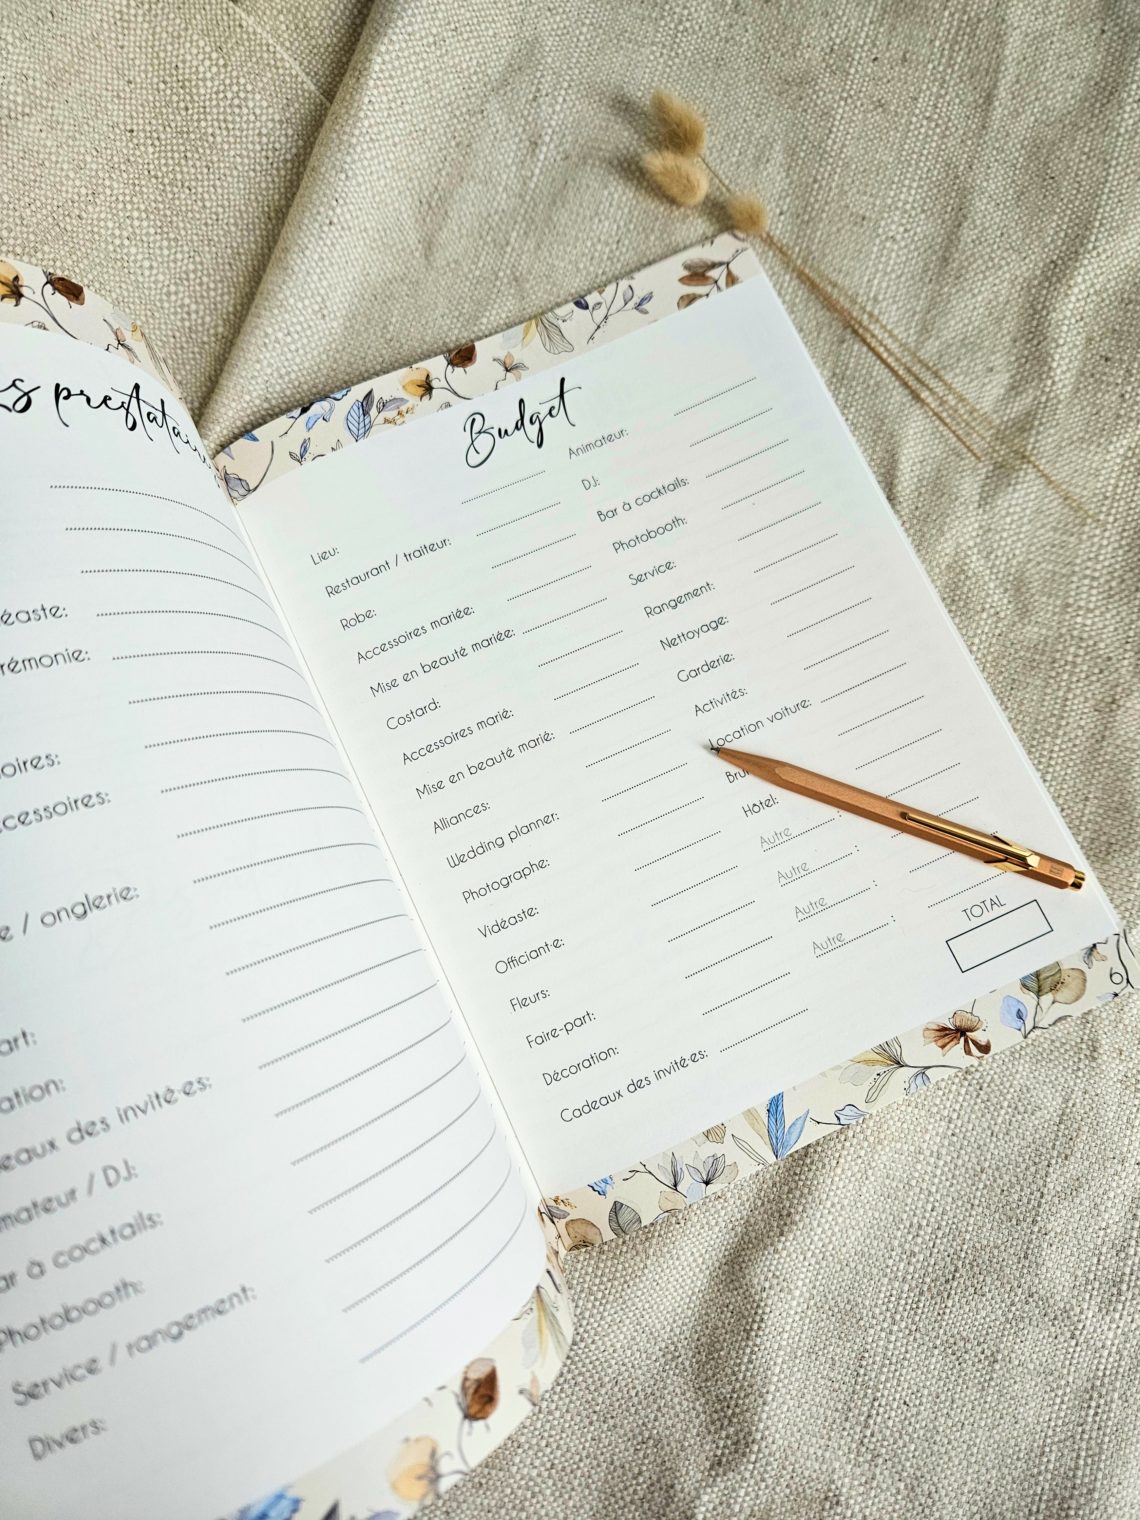 prestatai
éaste:
rémonie:
oires:
ccessoires:
e / onglerie:
art:
ation:
eaux des invité·es:
mateur / DJ:
ar à cocktails:
Photobooth:
Service / rangement:
Divers:
Budget
Lieu:
Restaurant / traiteur:
Robe:
Accessoires mariée:
Mise en beauté mariée:
Costard:
Accessoires marié:
Mise en beauté marié:
Alliances:
Wedding planner:
Photographe:
Vidéaste:
Officiant·e:
Fleurs:
Faire-part:
Décoration:
Cadeaux des invité·es:
Animateur:
DJ:
Bar à cocktails:
Photobooth:
Service:
Rangement:
Nettoyage:
Garderie:
Activités:
Location voiture:
Bru
Hôtel:
Autre :
Autre :
Autre :
Autre :
TOTAL
6